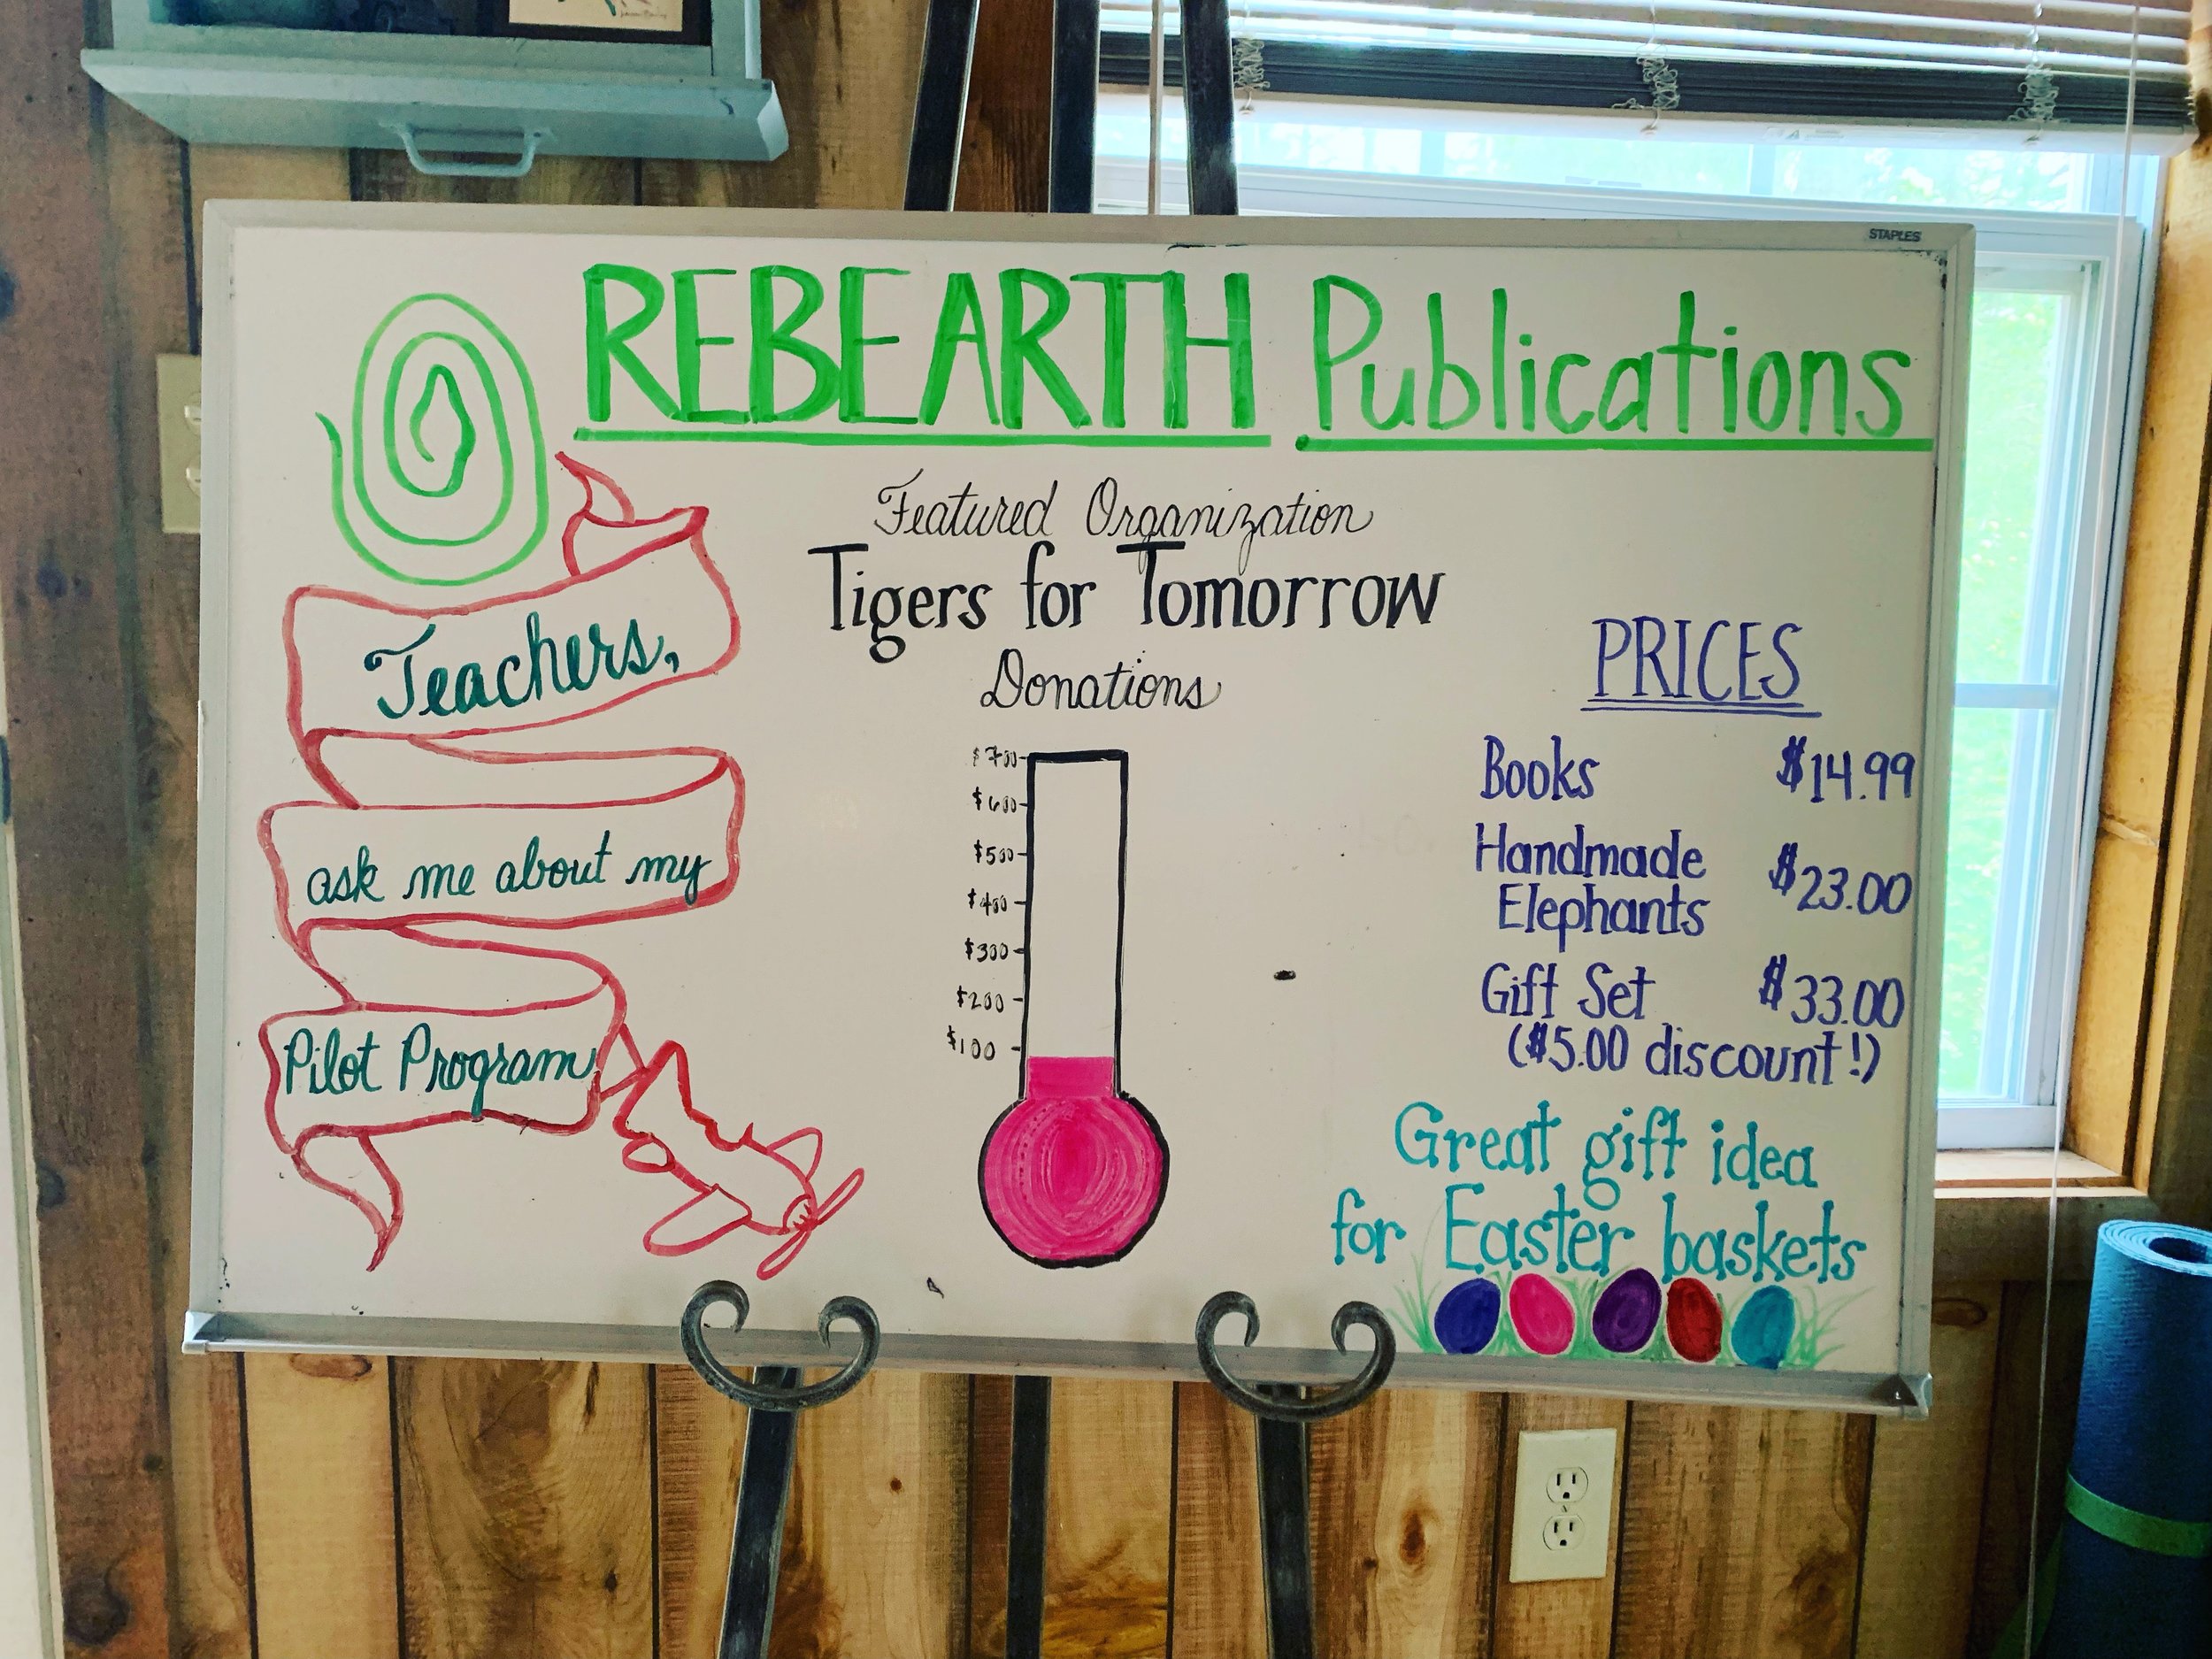 STAPLES
REBEARTH Publications
Teachers,
ask me about my
Pilot Program
Featured Organization
Tigers for Tomorrow
Donations
$700
$600
$500
$400
$300
$200
$100
PRICES
Books $14.99
Handmade
Elephants $23.00
Gift Set $33.00
($5.00 discount!)
Great gift idea
for Easter baskets